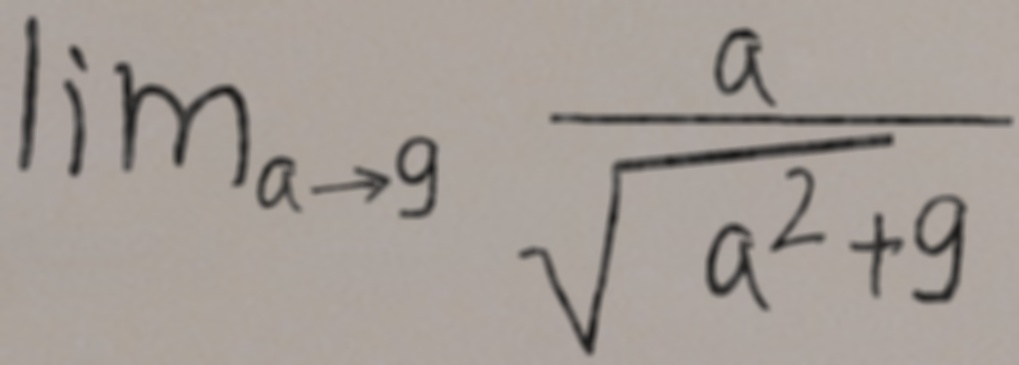 lim_{a→9} \frac{a}{\sqrt{a^2+9}}